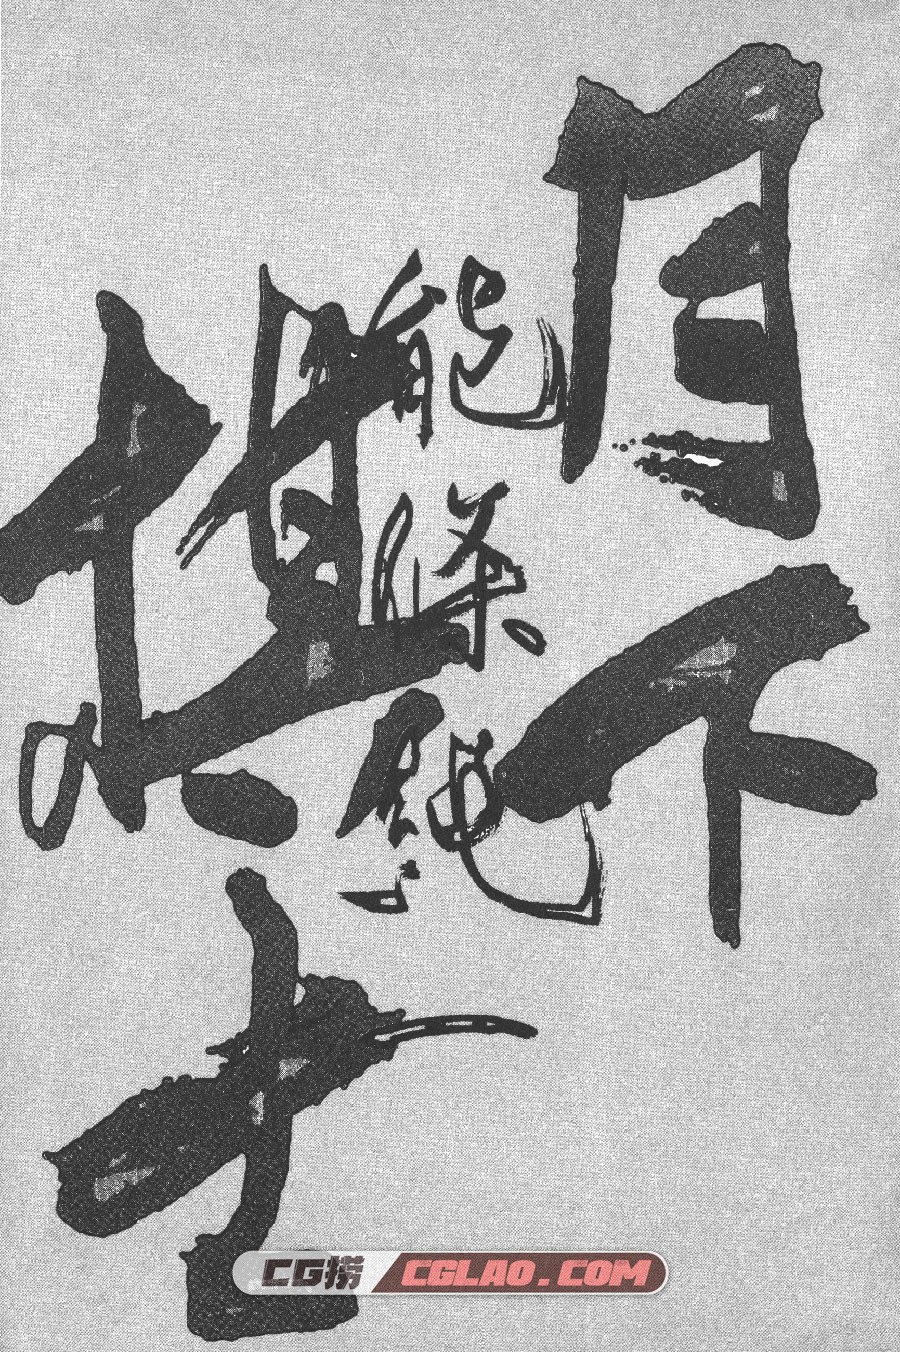 月下
能條純一
棋士
CG捞 CGLAO.COM